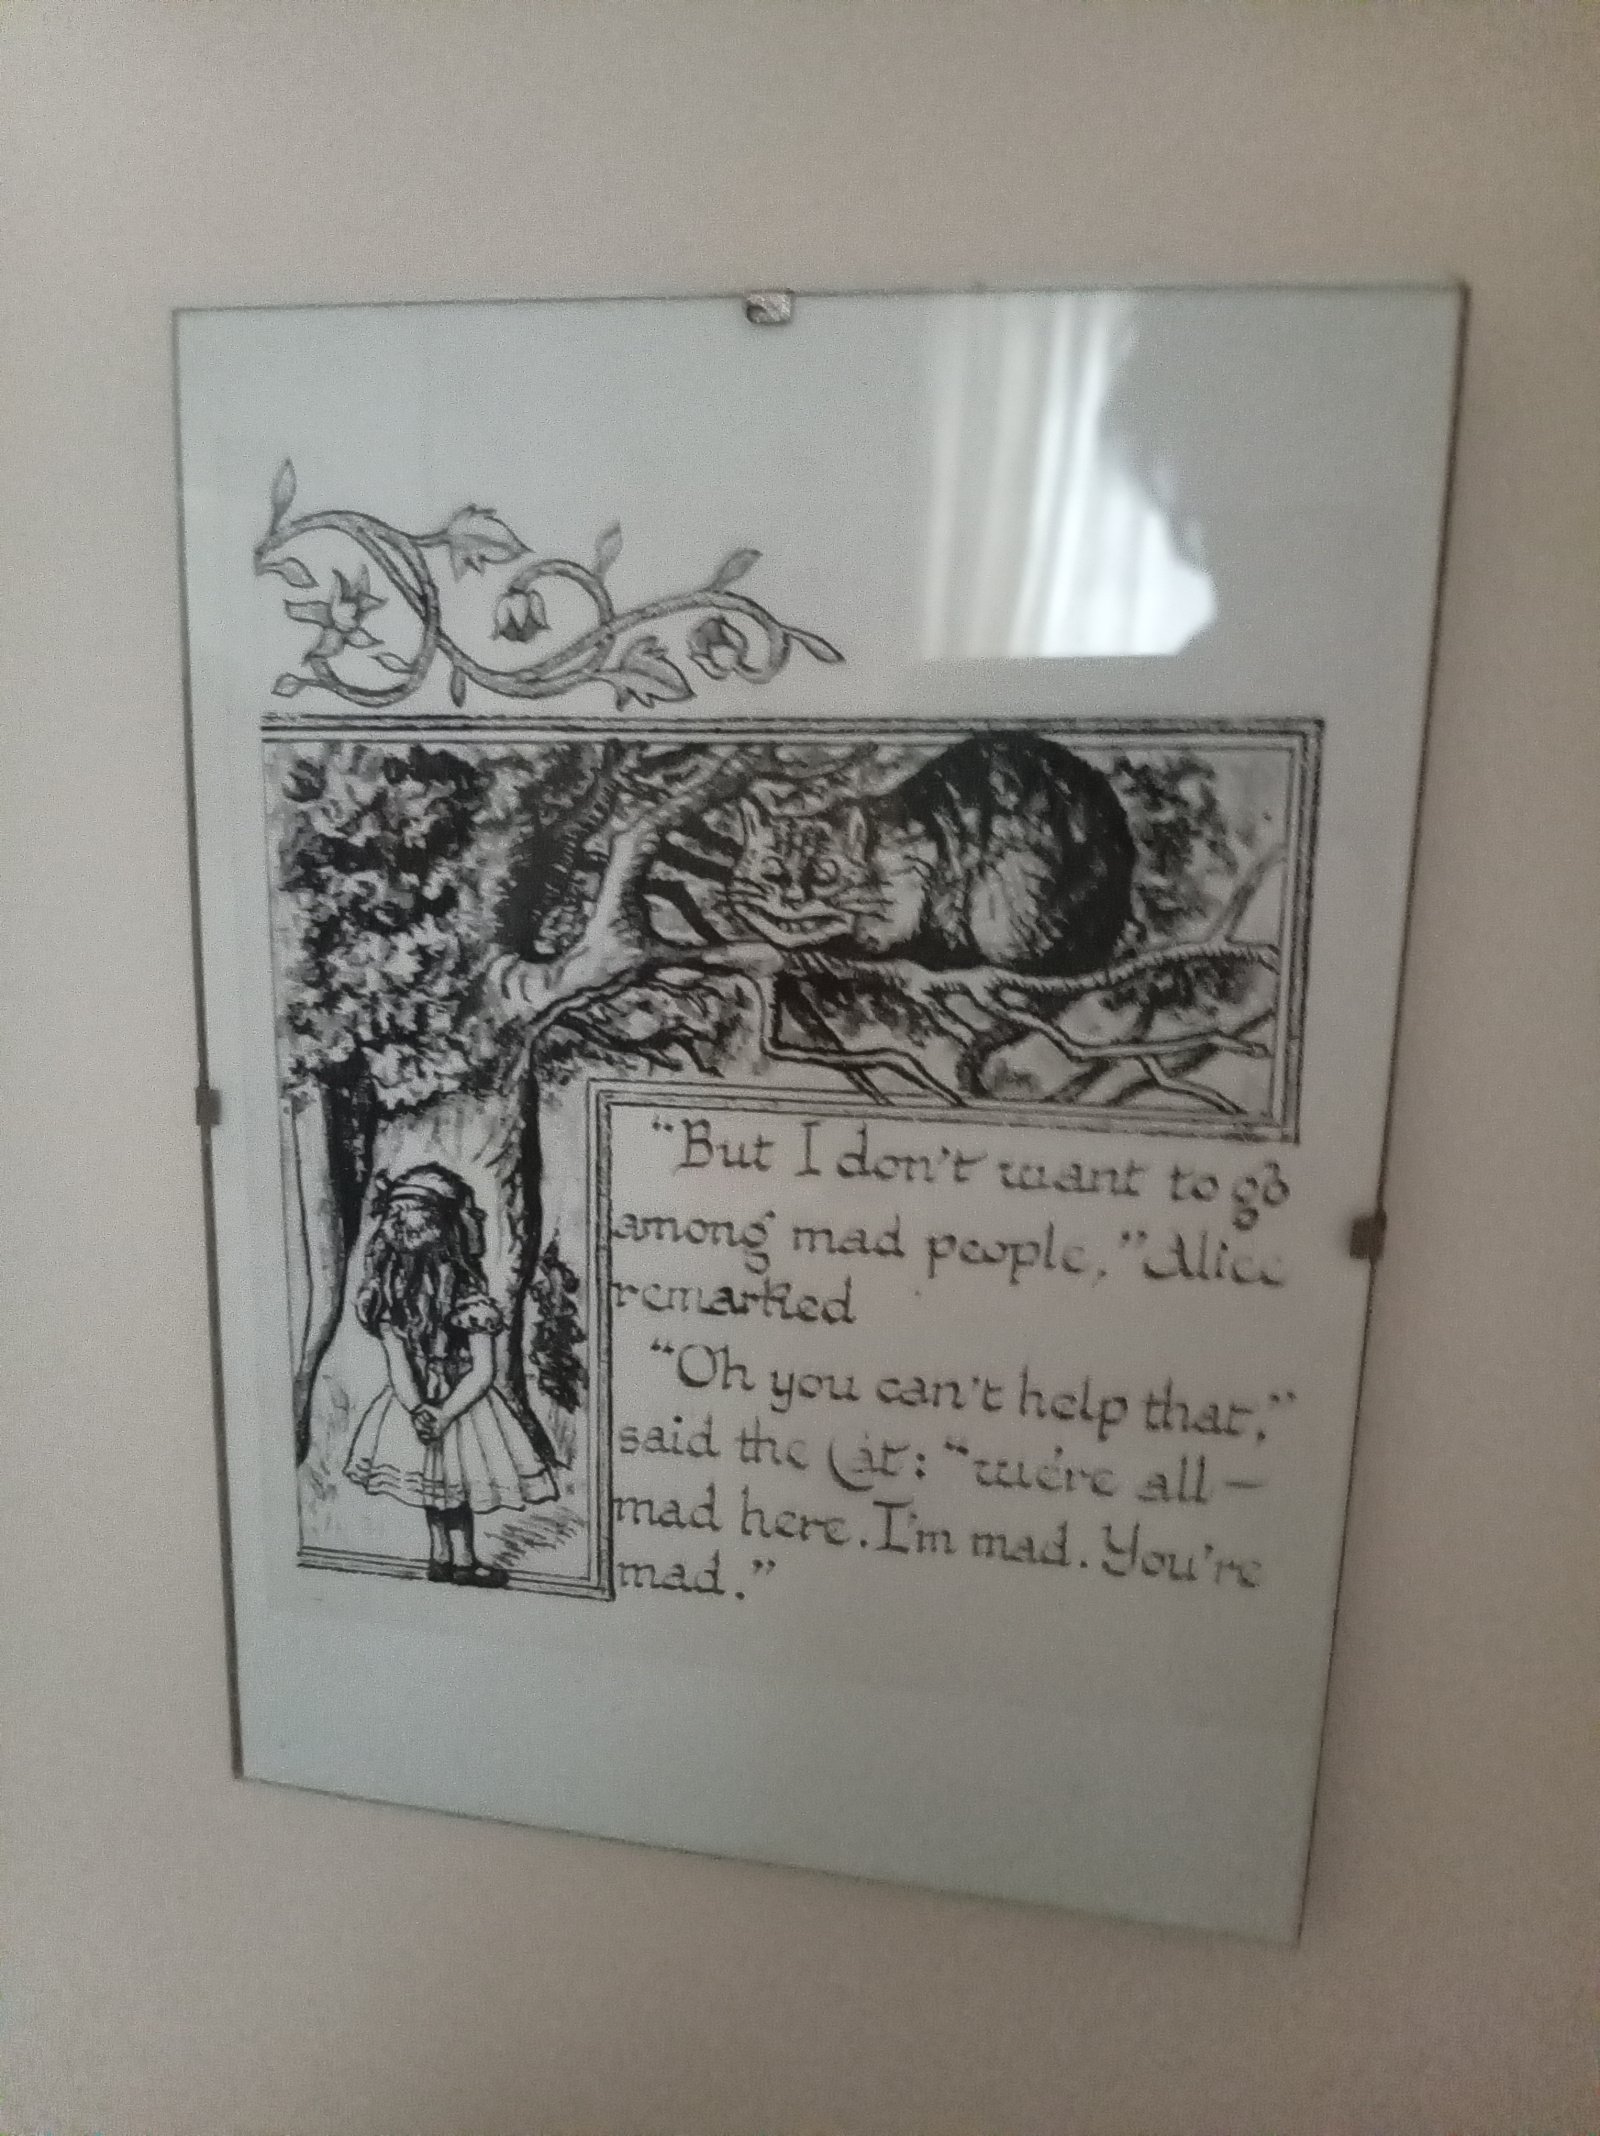 “But I don't want to go
among mad people,” Alice
remarked
“Oh you can't help that,”
said the Cat: “we're all —
mad here. I'm mad. You're
mad.”